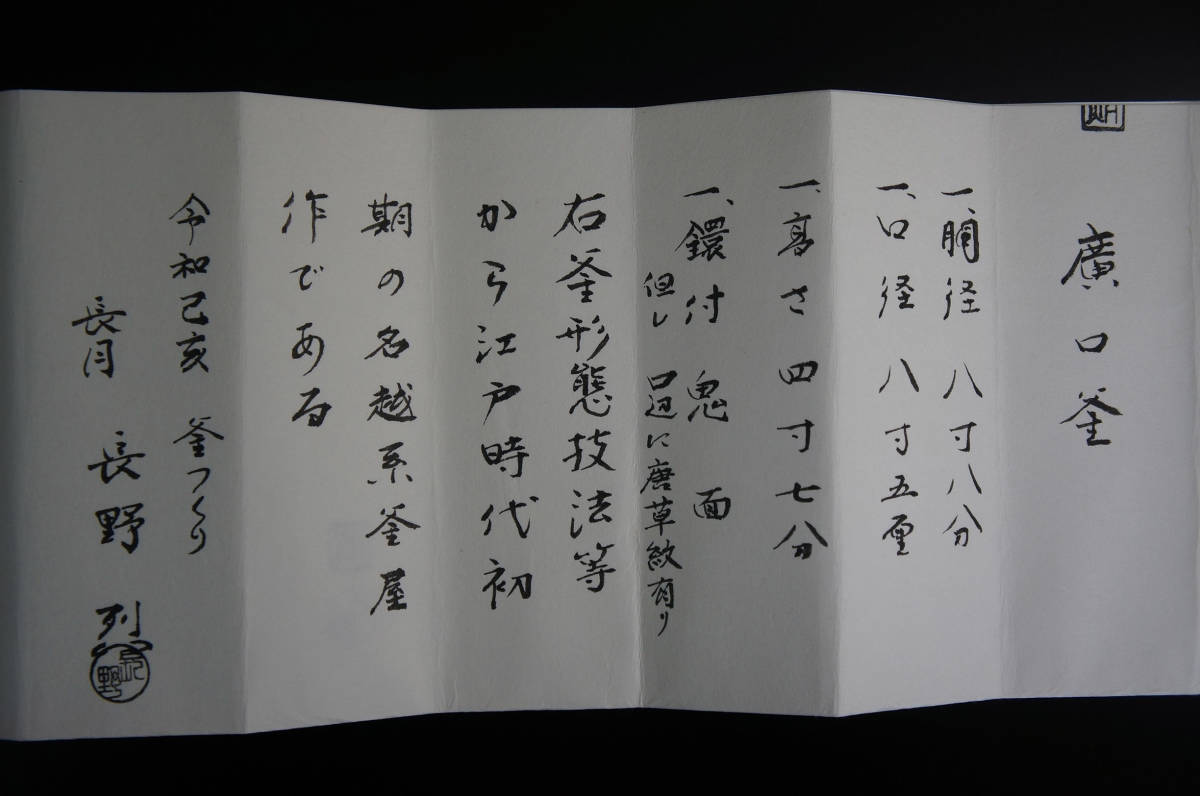 廣口釜
一、胴径 八寸八分
一、口径 八寸五厘
一、高さ 四寸七分
一、鐶付 鬼面
但し 口辺に唐草紋有り
右釜形態技法等
から江戸時代初
期の名越系釜屋
作である
令和己亥 釜つくり
長月 長野 烈
長野